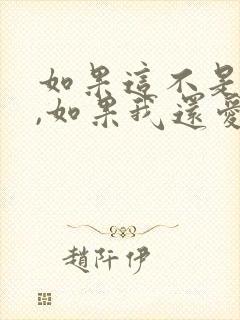 如果這不是
,如果我還愛
趙阡伊